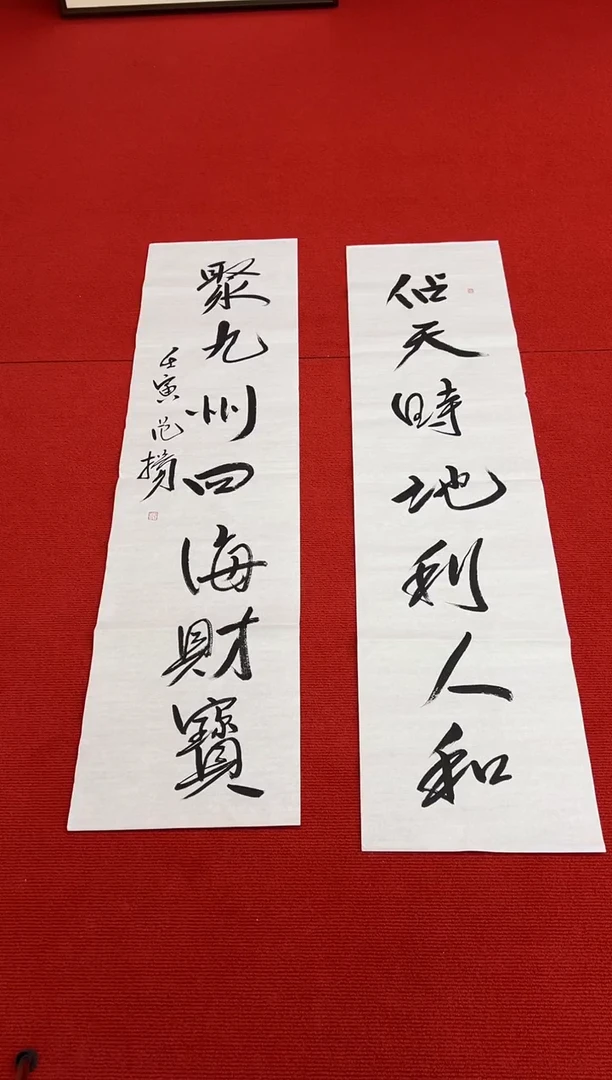 佔天時地利人和
聚九州四海財寶
壬寅 范